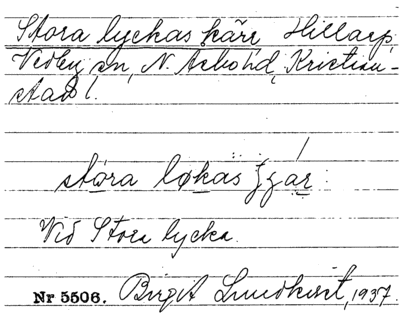 Stora lyckas kärr Hillarp
Vedby sn, N. Åsbo hd, Kristian-
stad l.
stora løkas
Vid Stora lycka.
Nr 5506. Birgit Lundkvist, 1937.